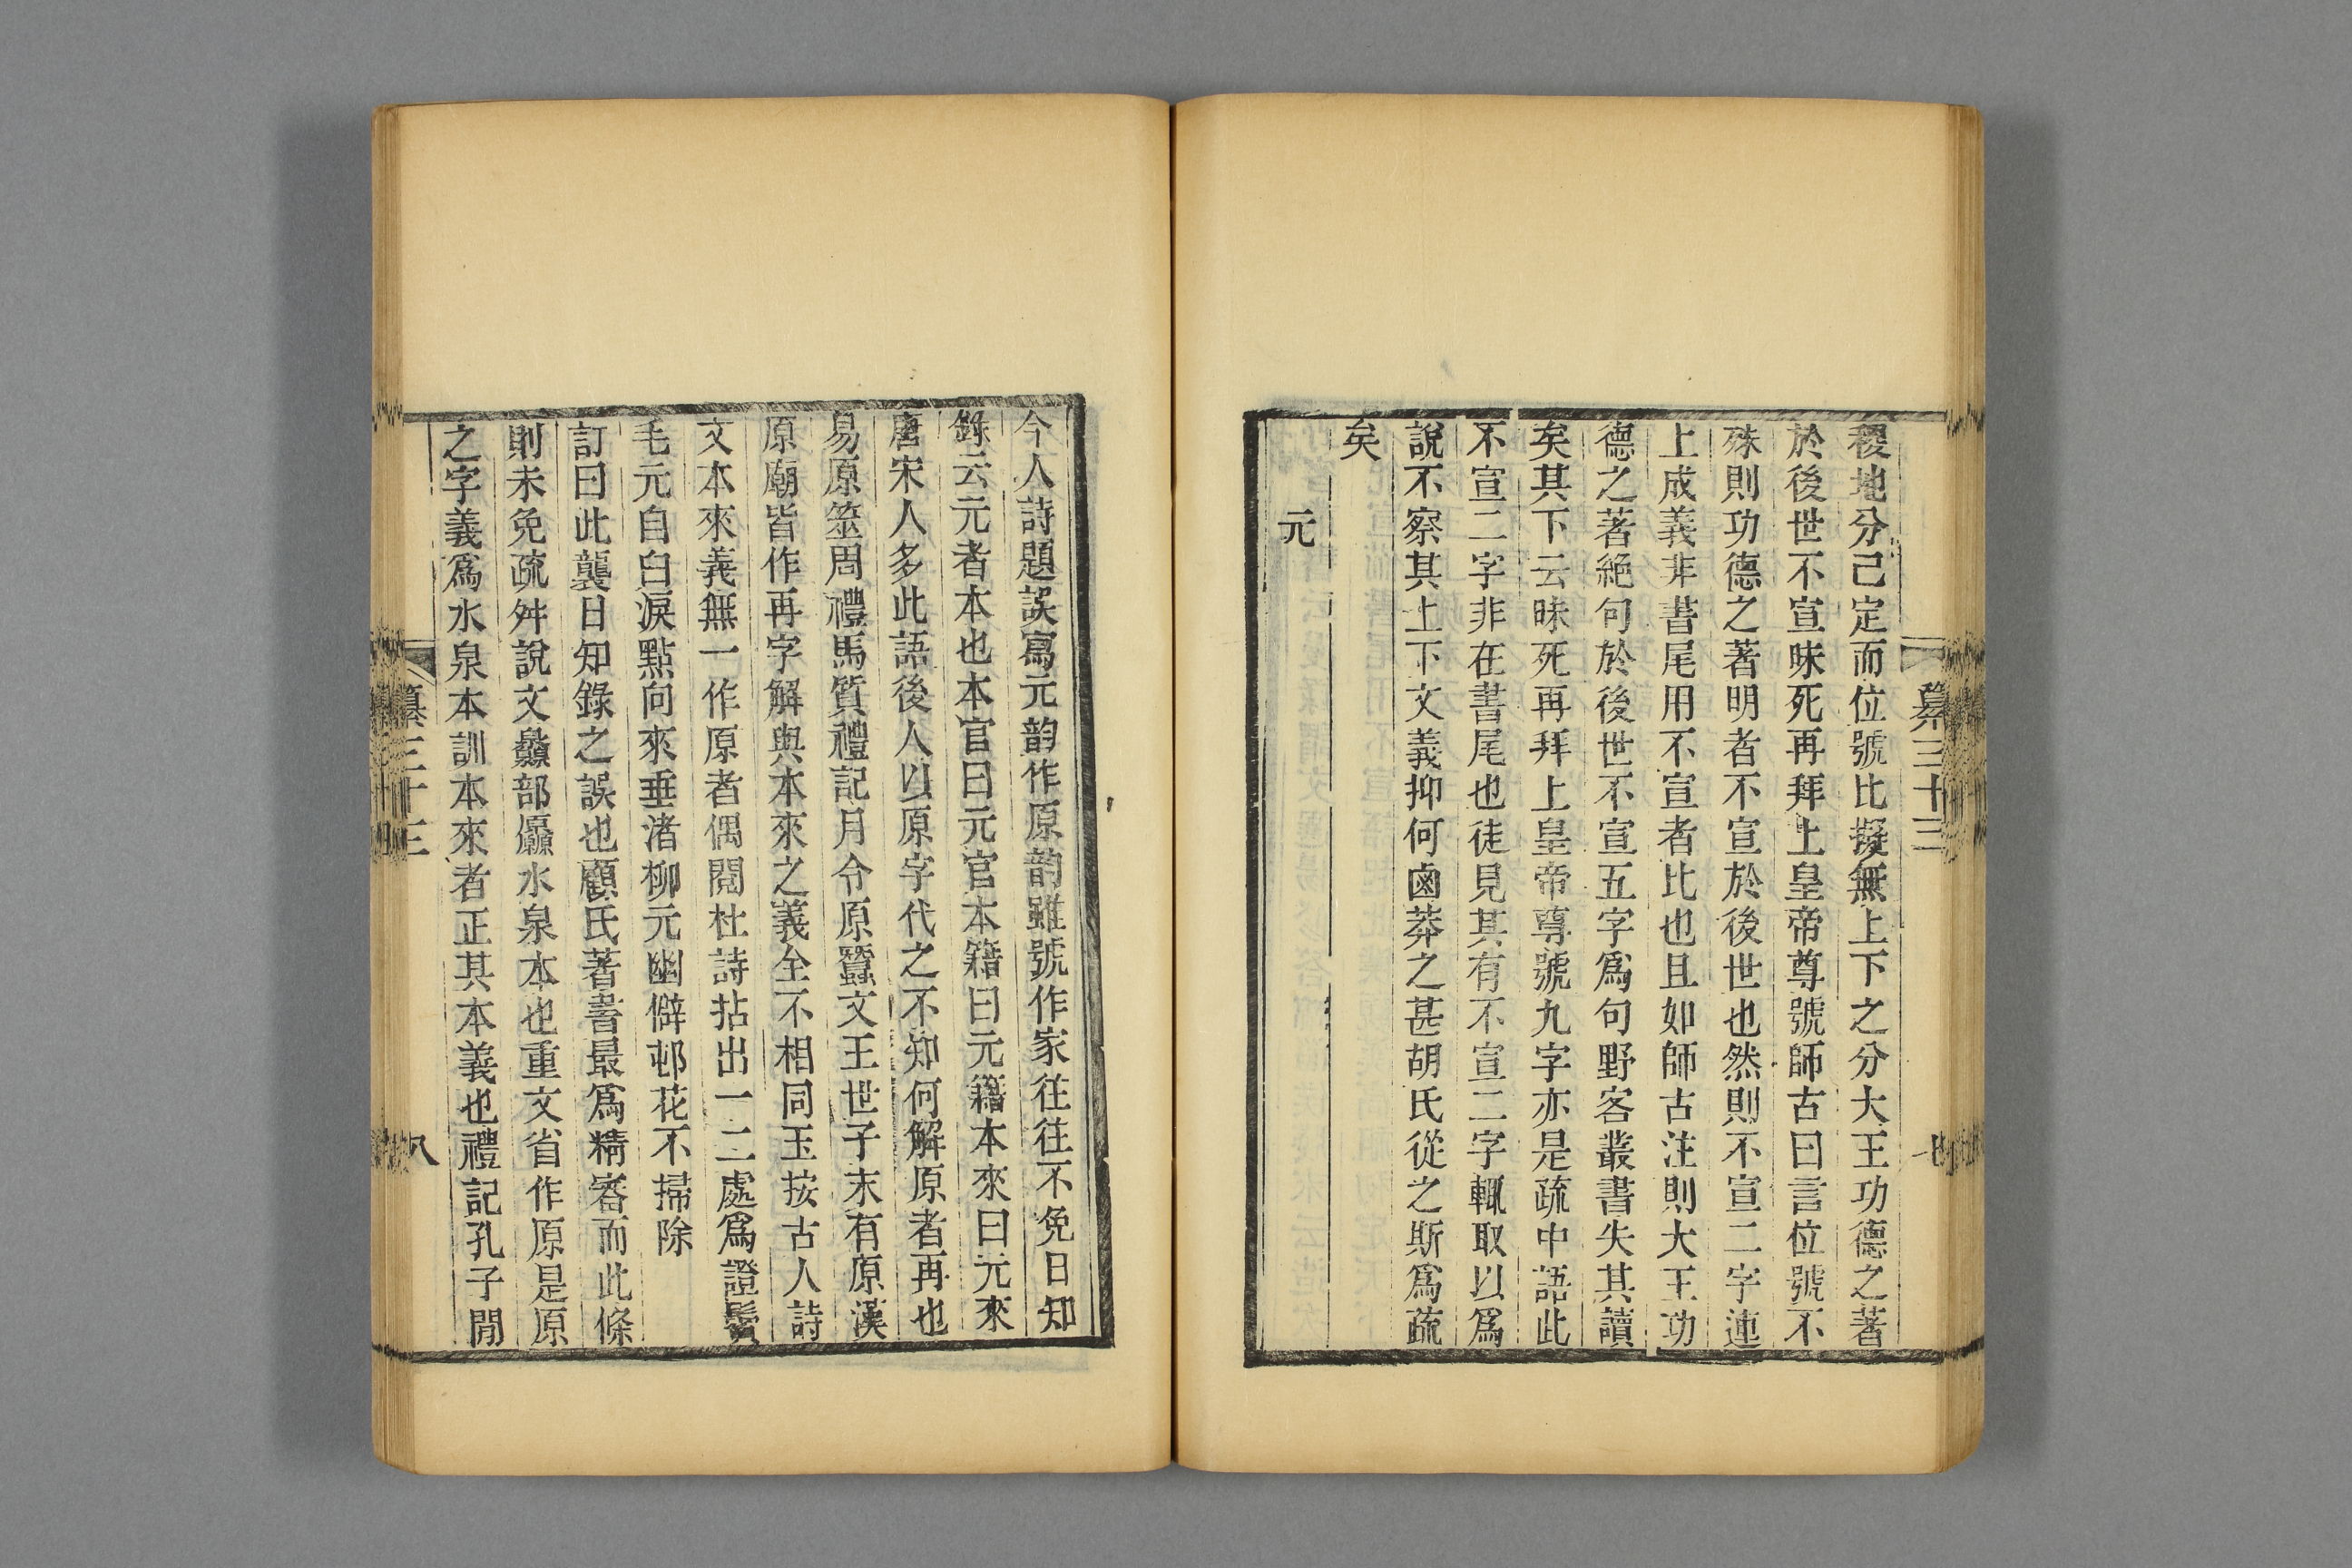 纂三十三
七
稷地分己定而位號比擬無上下之分大王功德之著
於後世不宣昧死再拜上皇帝尊號師古曰言位號不
殊則功德之著明者不宣於後世也然則不宣二字連
上成義非書尾用不宣者比也且如師古注則大王功
德之著絕句於後世不宣五字爲句野客叢書失其讀
矣其下云昧死再拜上皇帝尊號九字亦是疏中語此
不宣二字非在書尾也徒見其有不宣二字輒取以爲
說不察其上下文義抑何鹵莽之甚胡氏從之斯爲疏
矣
元
今人詩題誤寫元韵作原韵雖號作家往往不免日知
錄云元者本也本官曰元官本籍曰元籍本來曰元來
唐宋人多此語後人以原字代之不知何解原者再也
易原筮周禮馬質禮記月令原蠶文王世子末有原漢
原廟皆作再字解與本來之義全不相同玉按古人詩
文本來義無一作原者偶閱杜詩拈出一二處爲證鬢
毛元自白淚點向來垂渚柳元幽僻邨花不掃除
訂曰此襲日知錄之誤也顧氏著書最爲精審而此條
則未免疏舛說文灥部厵水泉本也重文省作原是原
之字義爲水泉本訓本來者正其本義也禮記孔子閒
纂三十三
八